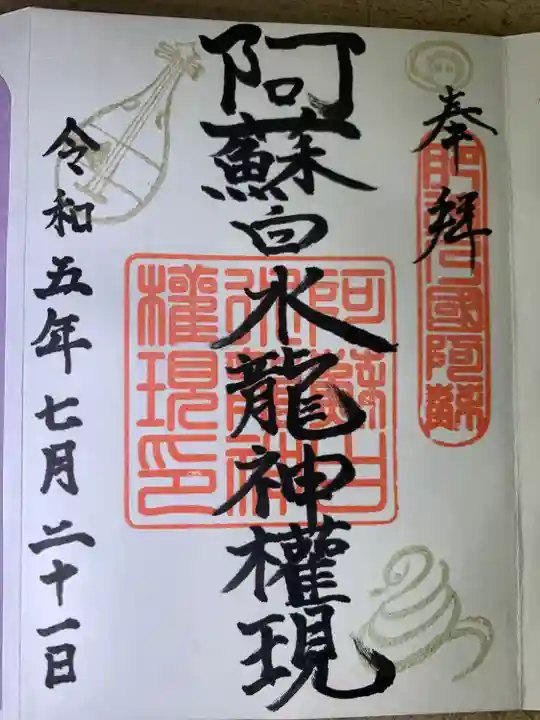 奉拝
阿蘇白水龍神權現
令和五年七月二十一日
阿蘇白
水龍神
權現印
國阿蘇